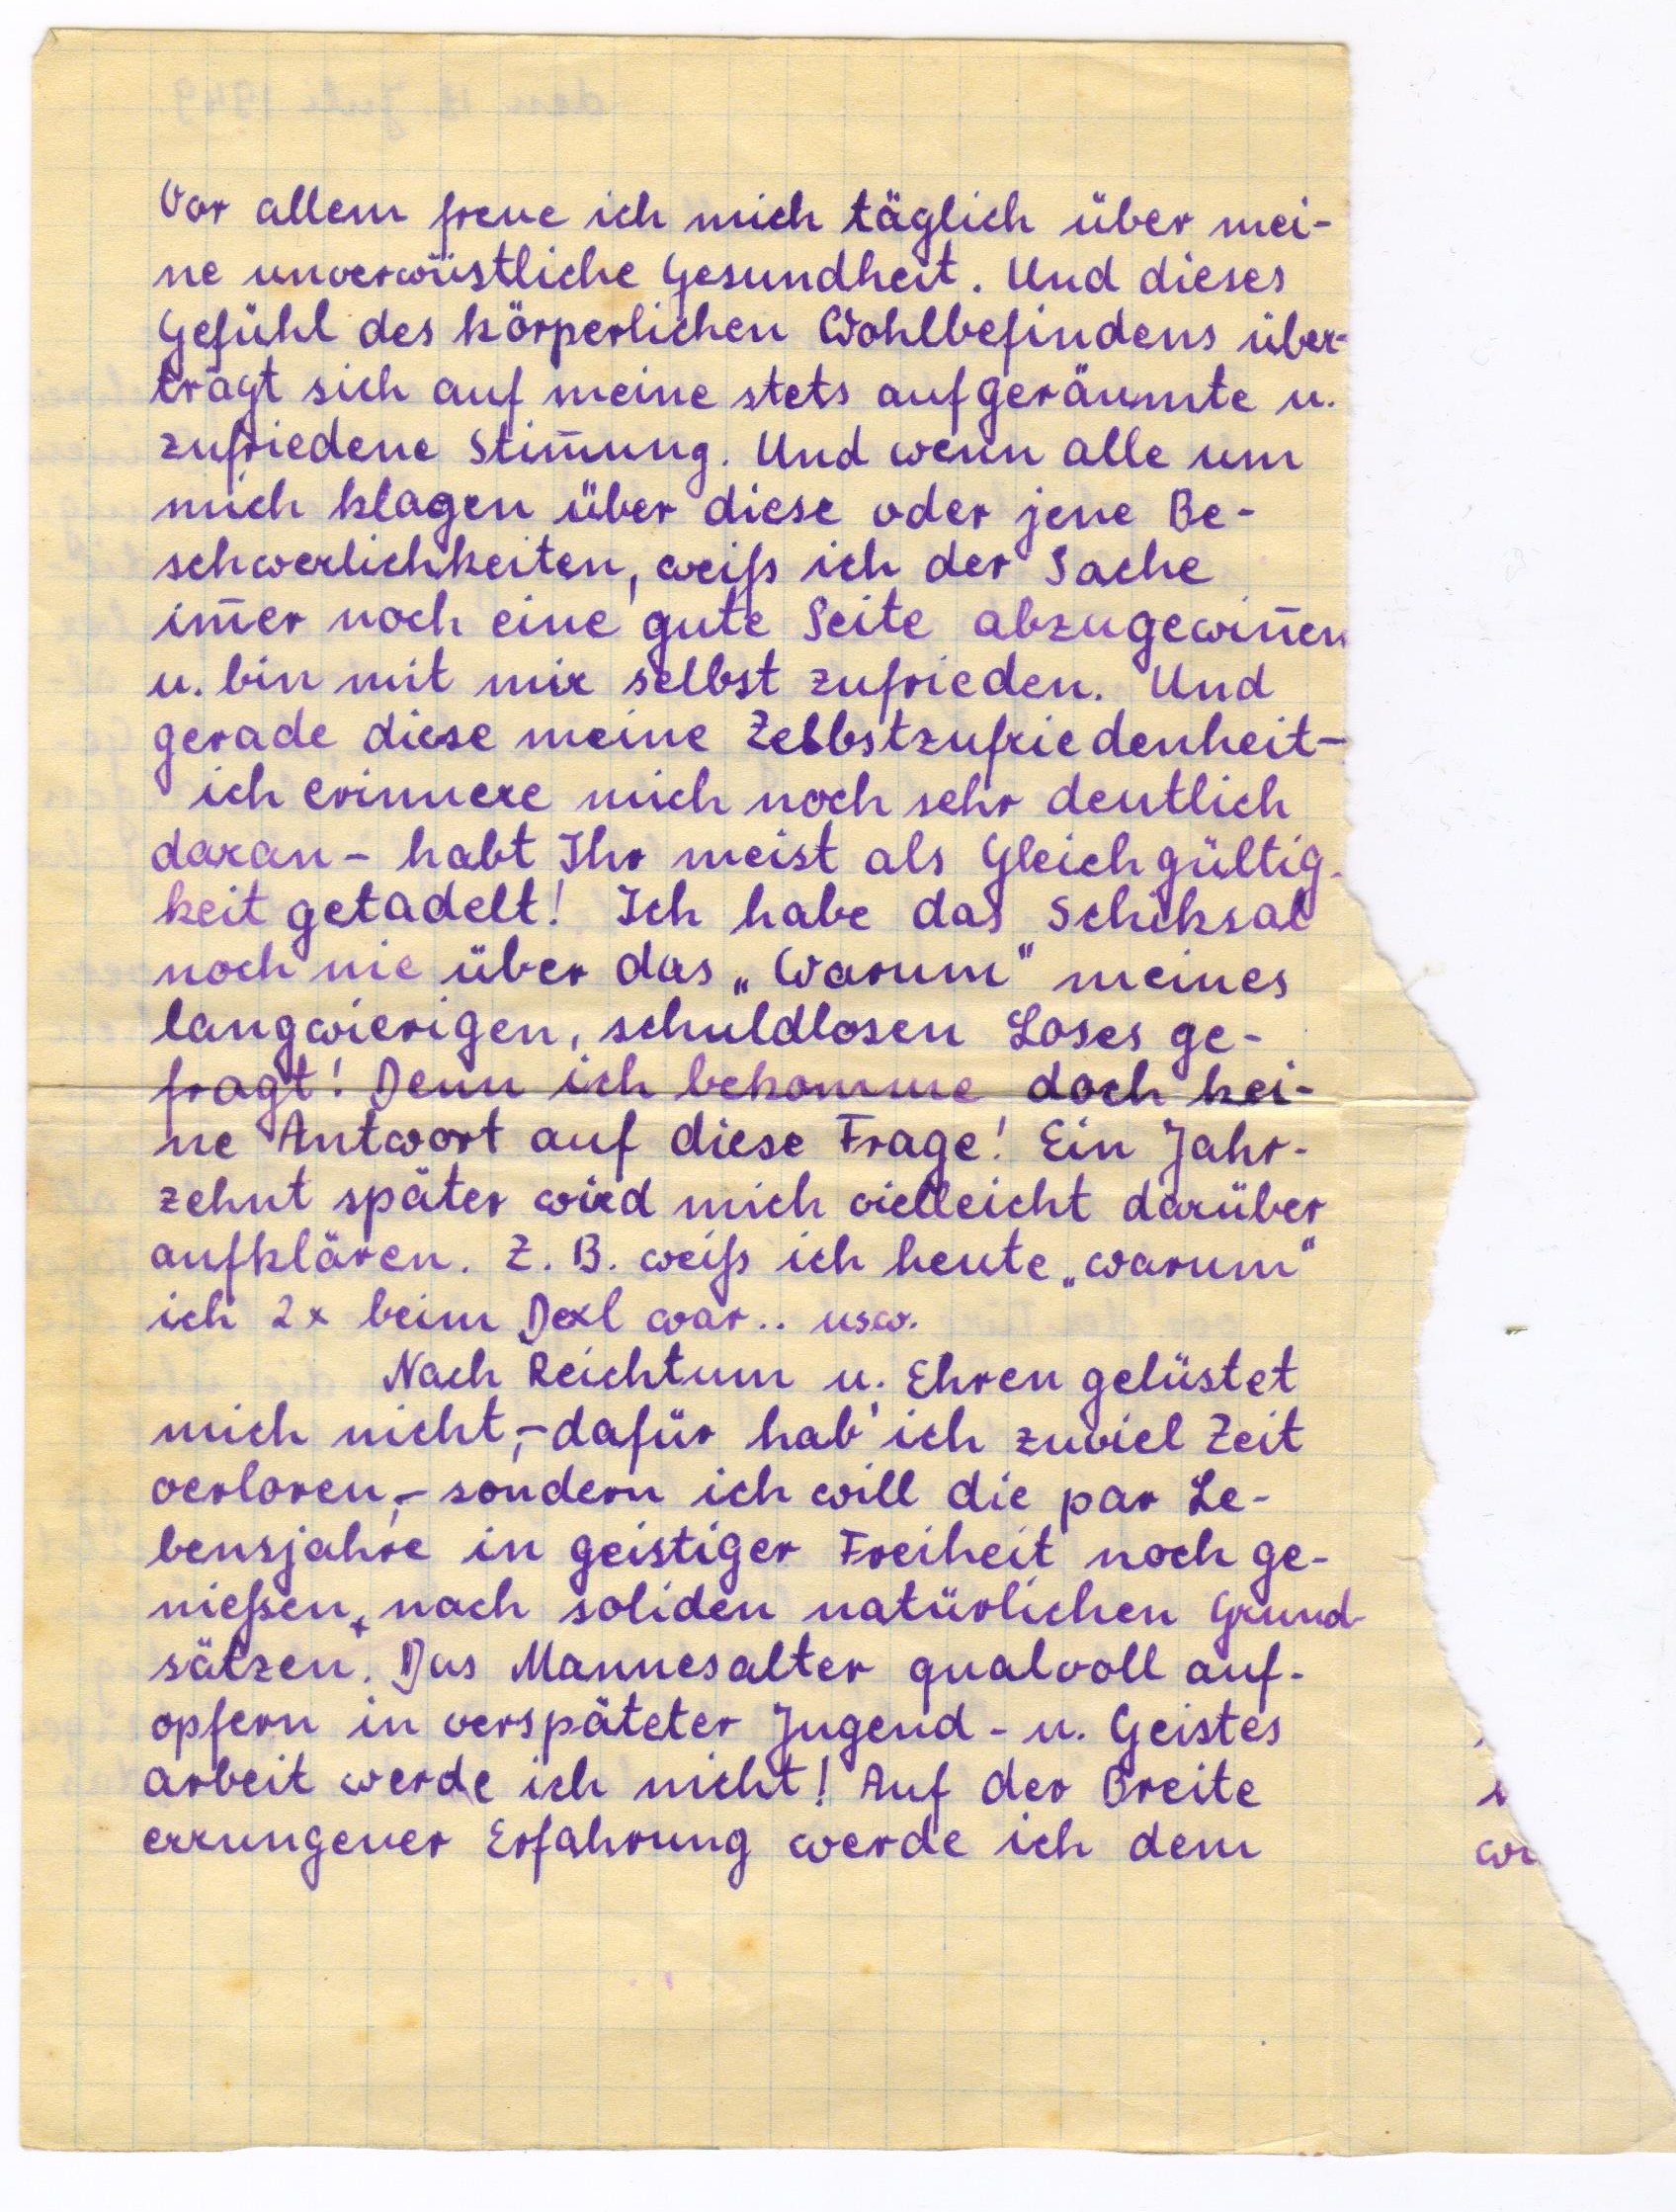 Vor allem freue ich mich täglich über mei-
ne unverwüstliche Gesundheit. Und dieses
Gefühl des körperlichen Wohlbefindens über-
trägt sich auf meine stets aufgeräumte u.
zufriedene Stim̄ung. Und wenn alle um
mich klagen über diese oder jene Be-
schwerlichkeiten, weiß ich der Sache
im̄er noch eine gute Seite abzugewin̄en
u. bin mit mir selbst zufrieden. Und
gerade diese meine Zelbstzufriedenheit-
ich erinnere mich noch sehr deutlich
daran - habt Ihr meist als Gleichgültig-
keit getadelt! Ich habe das Schiksal
noch nie über das „Warum" meines
langwierigen, schuldlosen Loses ge-
fragt! Denn ich bekomme doch kei-
ne Antwort auf diese Frage! Ein Jahr-
zehnt später wird mich vielleicht darüber
aufklären. Z. B. weiß ich heute „warum"
ich 2x beim Dexl war.. usw.
Nach Reichtum u. Ehren gelüstet
mich nicht,- dafür hab' ich zuviel Zeit
verloren,- sondern ich will die par Le-
bensjahre in geistiger Freiheit noch ge-
nießen, nach soliden natürlichen Grund-
sätzen. Das Mannesalter qualvoll auf-
opfern in verspäteter Jugend- u. Geistes
arbeit werde ich nicht! Auf der Breite
errungener Erfahrung werde ich dem